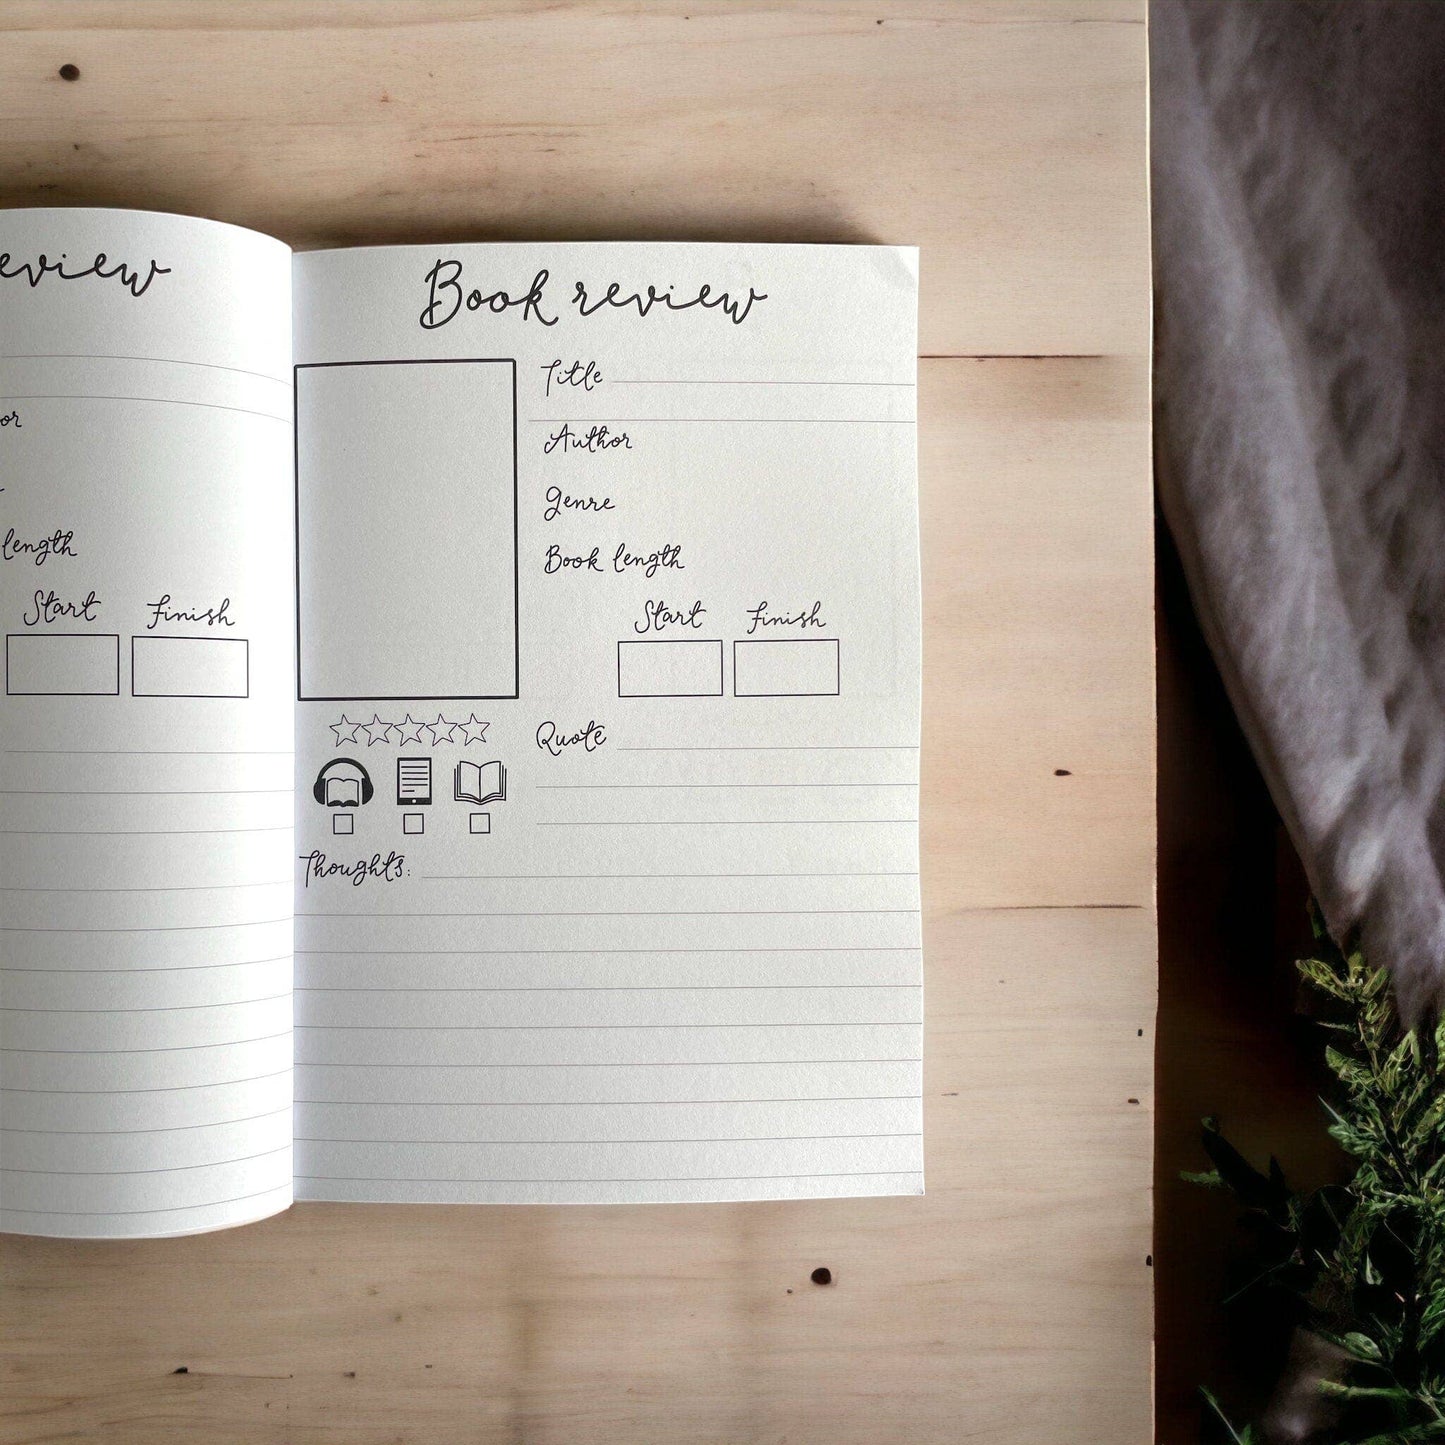 eview
or
length
Start Finish
Book review
Title
Author
Genre
Book length
Start Finish
Quote
Thoughts: